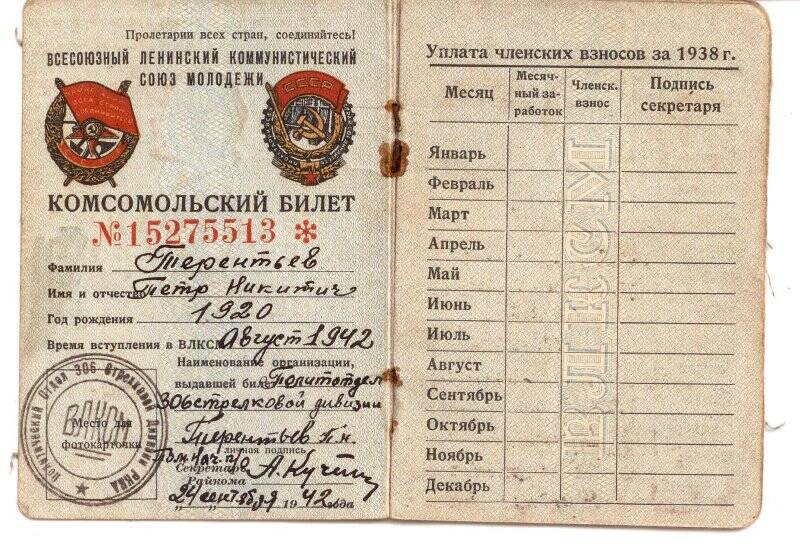 Пролетарии всех стран, соединяйтесь!
ВСЕСОЮЗНЫЙ ЛЕНИНСКИЙ КОММУНИСТИЧЕСКИЙ
СОЮЗ МОЛОДЕЖИ
СССР
КОМСОМОЛЬСКИЙ БИЛЕТ
№15275513 *
Фамилия Терентьев
Имя и отчество Петр Никитич
Год рождения 1920
Время вступления в ВЛКСМ Август 1942
Наименование организации,
выдавшей билет Политотдел
306 стрелковой дивизии
Место для
фотокарточки
Терентьев П.Н.
личная подпись
Пом. Нач. п/о
Секретарь
Райкома
"24" сентября 1942 года
Политический Отдел 306 Стрелковой Дивизии РККА
ВЛКСМ
Уплата членских взносов за 1938 г.
Месяц
Месяч-
ный за-
работок
Членск.
взнос
Подпись
секретаря
Январь
Февраль
Март
Апрель
Май
Июнь
Июль
Август
Сентябрь
Октябрь
Ноябрь
Декабрь
ВЛКСМ